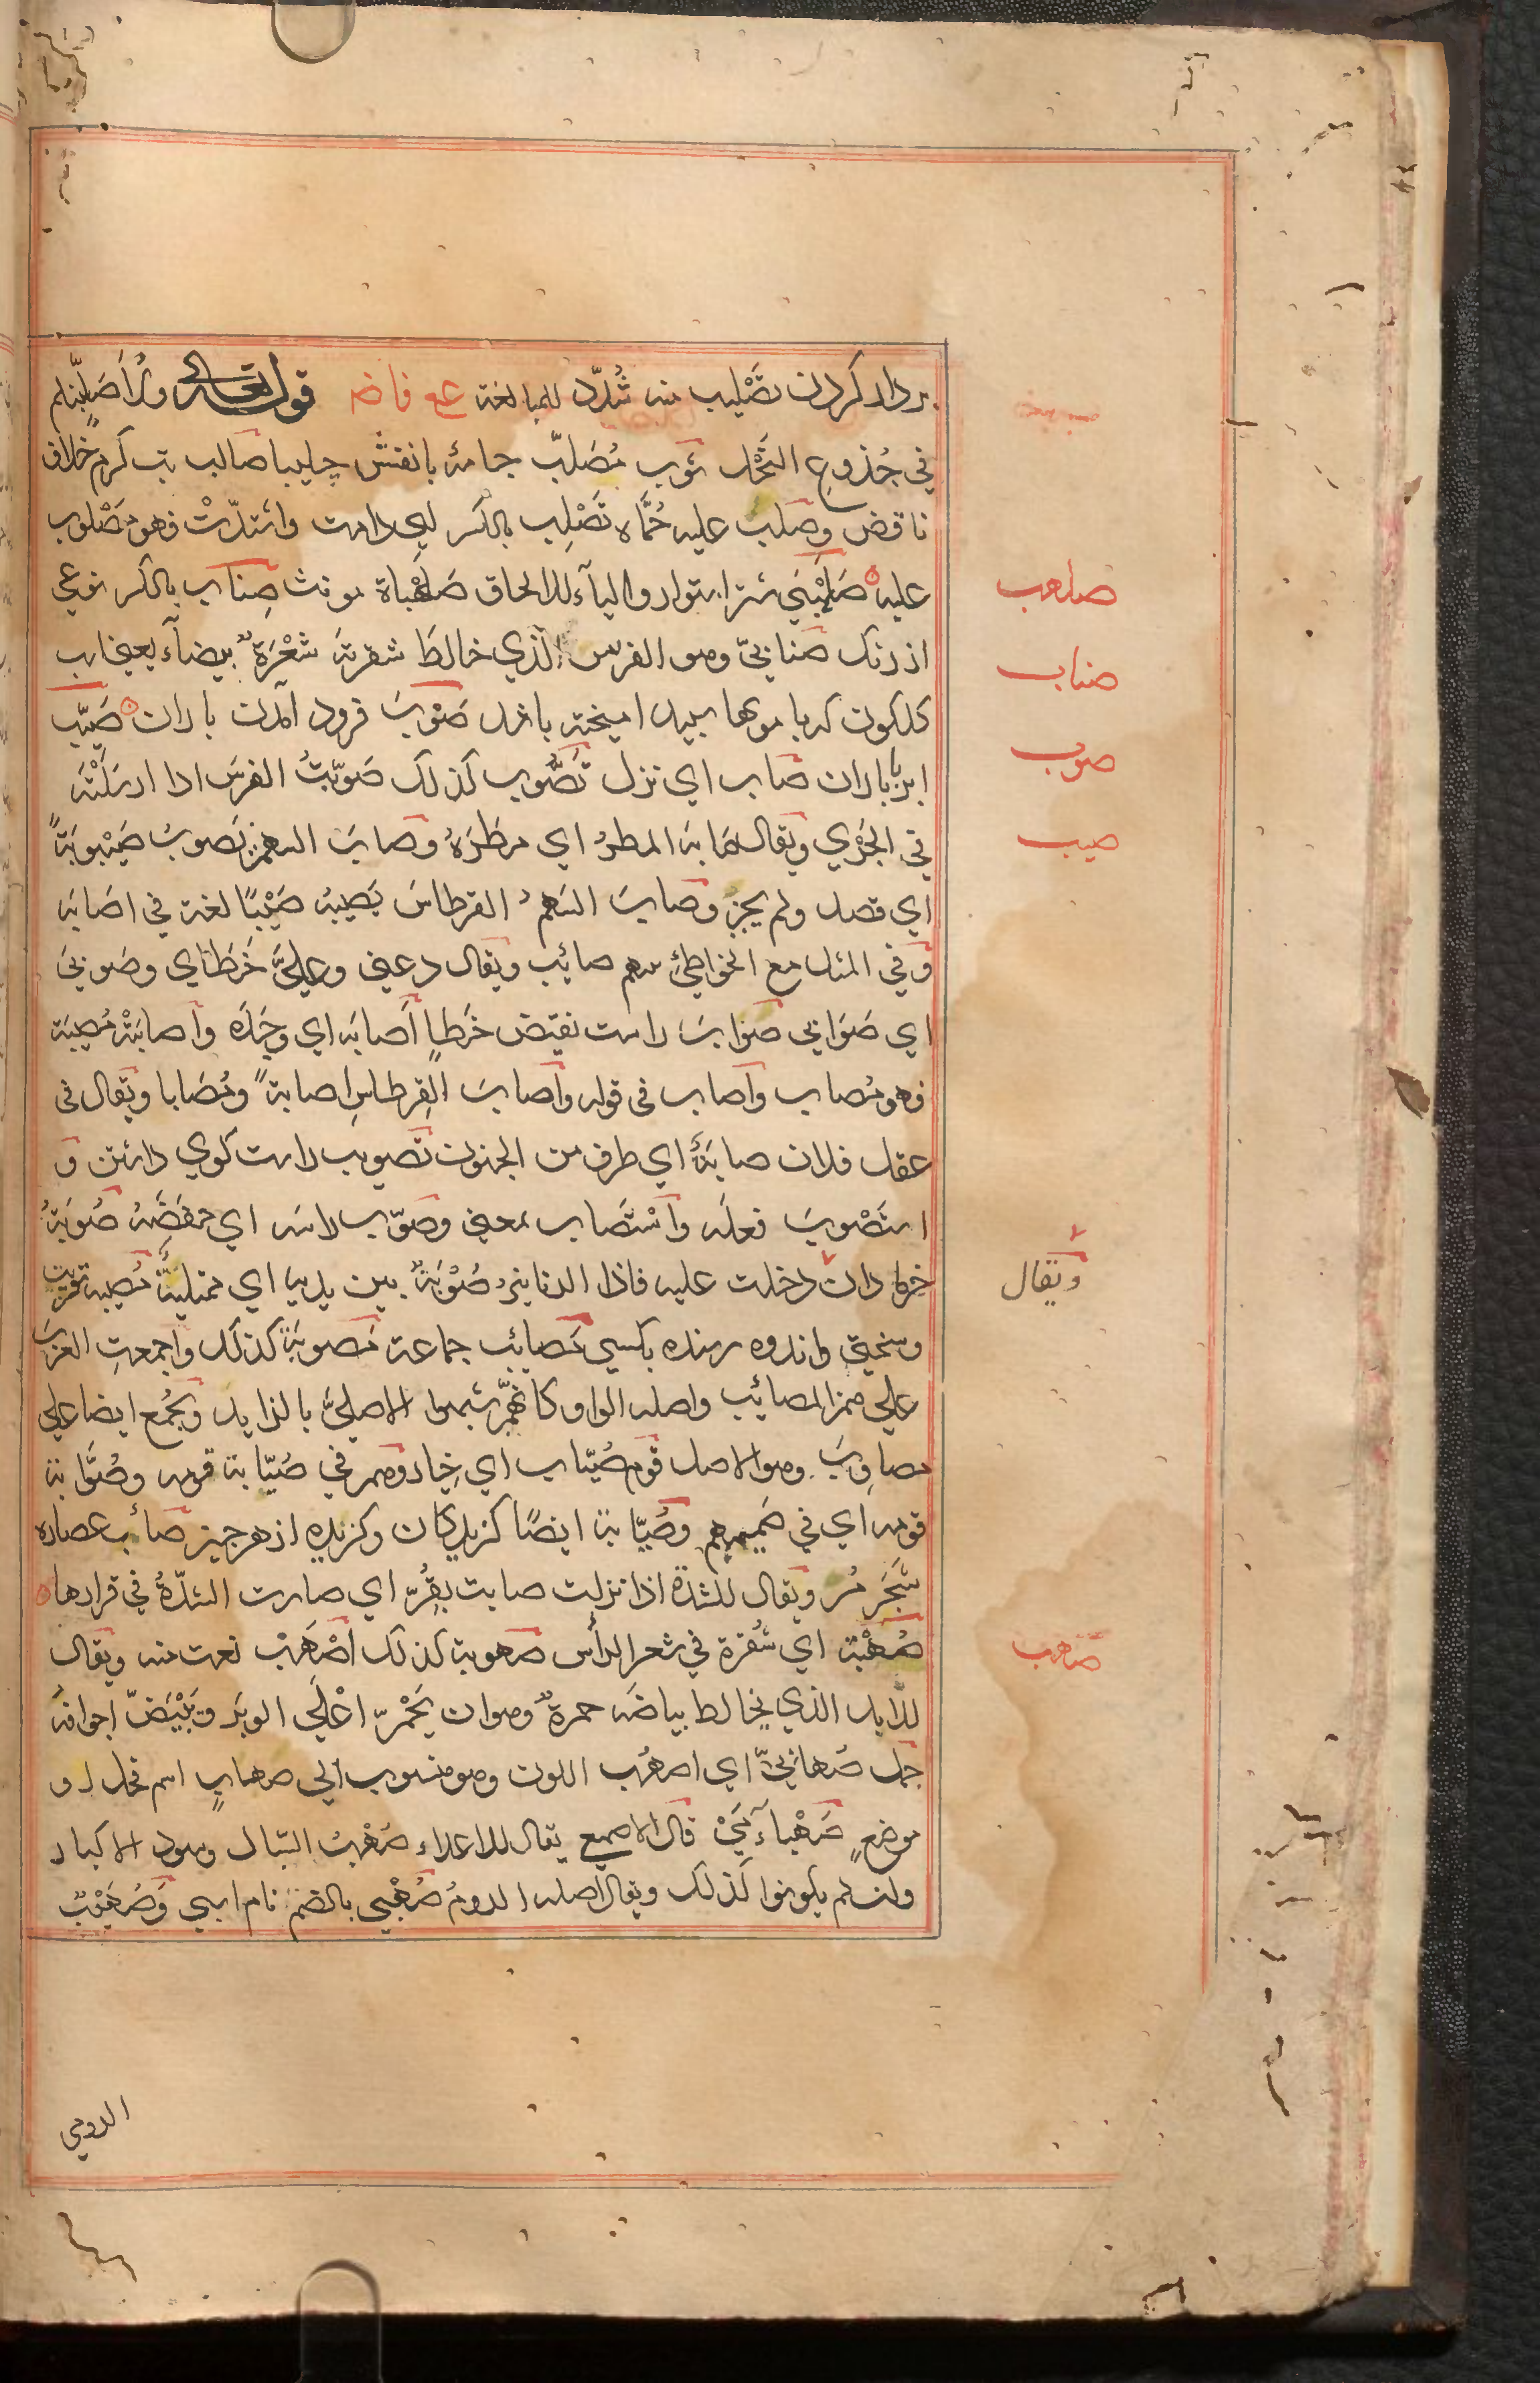 بر دار کردن تَصْلِیب منه شُدِّد للمبالغة ع فاضه قوله تعالى ولَاُصَلِّبَنَّكم
في جُذوعِ النَّخْل ثوب مُصَلَّب جامهٔ با نقش چلیپا صالب تب کرم خلاف
ناقض وصَلَب علیه حُمَّاه تَصْلِب بالكسر اي دامت واشتدّتْ فهو مَصْلوب
علیه صَلَهْبَى شتر استوار والیآء للالحاق صَلَهْباة مونث صِناب بالكسر نوعي
از رنک صنابيّ وهو الفرس الّذي خالطَ شقرتَه شَعْرَةٌ بیضآء یعني اسب
کلکون که با موها سپید امیخته باشد صَوْب فرود آمدن باران صَیِّب
ابر با باران صاب اي نزل تَصَوُّب كذلك صَوَّبْتُ الفرسَ اذا ارسَلْتَه
في الجَرْي ویقال صَابَه المطرُ اي مُطَرَهُ وصاب السهم یَصوبُ صَیْبوبَةً
اي قصد ولم یجز وصاب السَهمُ القرطاسَ یَصِیبُه صَیْبًا لغة في اصَابَه
وفي المثل مع الخواطِئ سهم صائِب ویقال دعني وعَلَيَّ خَطَاي وصَوبي
اي صَوَابي صَوَاب راست نقیض خَطاٍ اَصابَه اي وجَدَه واَصابَتْه مُصِیبَة
فهو مُصاب واَصاب في قوله واَصابَ القِرطاسِ اصابةً ومُصَابا ویُقال في
عقل فلان صابَةٌ اي طرف من الجنون تَصْویب راست کوي داشتن و
استَصْوَبَ فعلَه واسْتَصاب بمعني وصَوَّب راسَه اي خَفَضَه صُوبَةُ
خرما دان دخلت علیه فاذا الدنانیرُ صُوْبَةٌ بین یدیه اي ممتلیةٌ مُصِیبة
وسختي واندوه رسنده بکسي مَصائِب جماعة مَصوبَة كذلك واجمعتِ العربُ
علي همز المصائِب واصله الواو كانّهم شبّهوا الاصليَّ بالزاید ویُجْمع ایضا علي
مصاوِبَ وهو الاصل قوم صُیّاب اي خِیار وهم في صُیّابة قومه وصُوَّابة
قومه اي في صَمیمهم وصُیّابة ایضًا کزیدکان وکزیده از هر چیز صائب عصاره
شَجَر مُر ویقال للشدّة اذا نزلت صابت بِقُرٍّ اي صارت الشدّةُ في قرارها
صُهْبَة اي شُقرة في شعر الرأس صهوبة كذلك اَصْهَبْ نعت منه ویقال
للاِبل الذي یخالط بیاضَه حمرةٌ وهو ان یَحْمَرّ اعْلَي الوبَر وتَبْیَضّ اجوافه
جمل صُهابيٌّ اي اصهب اللون وهو منسوب الي صهابٍ اسم فحل او
موضعٍ صَهْباَء مَيْ قال الاصمعي یقال للاعداء صُهْبُ السبّال وسود الاكباد
وان لم یكونوا كذلك ویقال اصله الرومُ صُهَیْبٌ بالضم نام اسپي وصُهَیْبٌ
صلهب
صناب
صوب
صیب
ویقال
صهب
الرومي